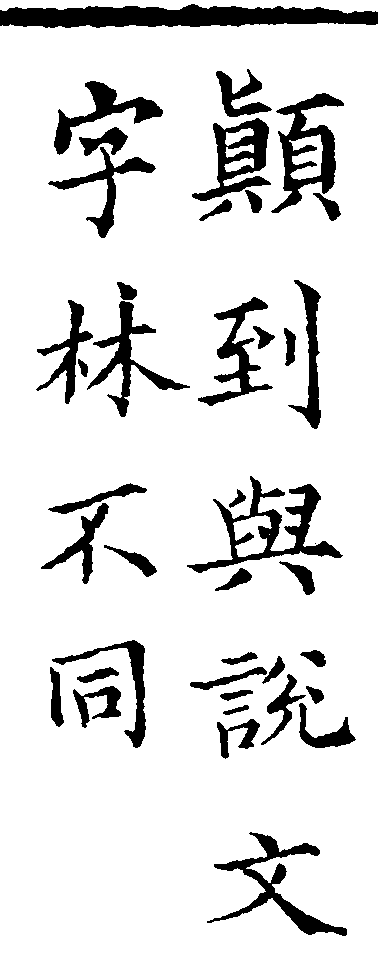 顚到與説文
字林不同